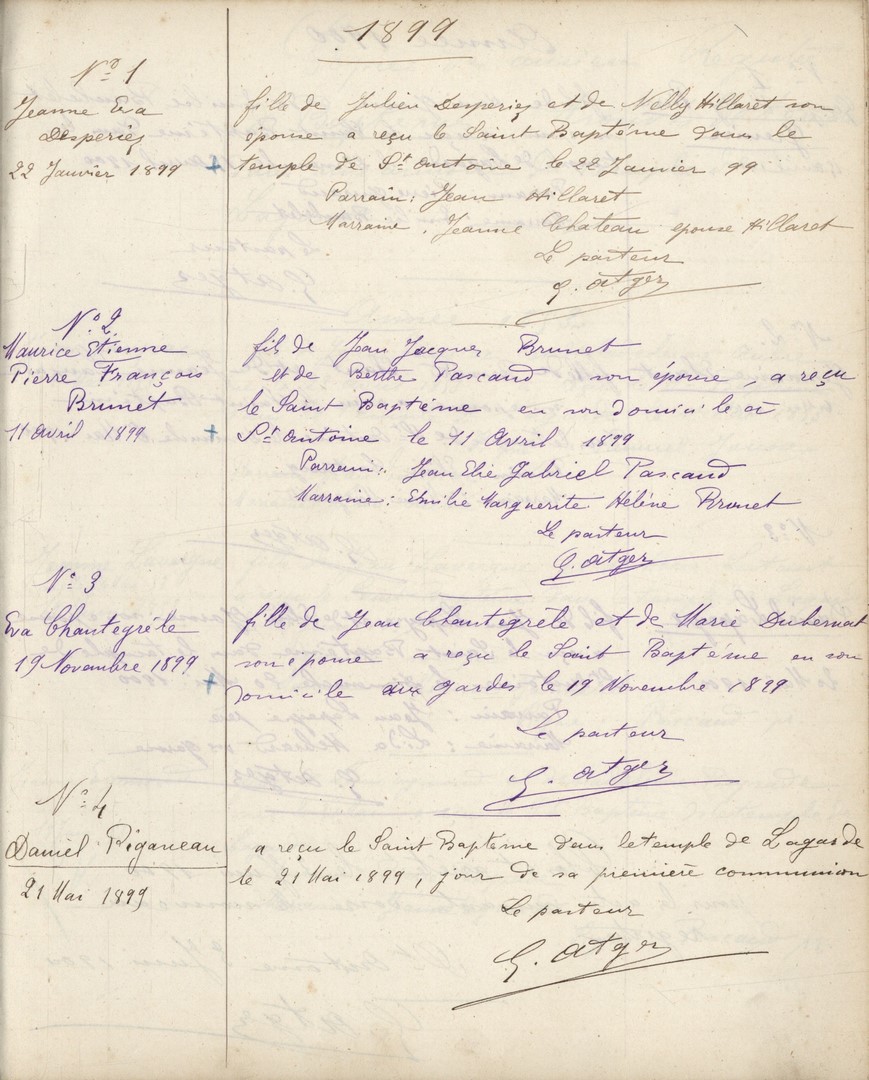 1899
Nº 1
Jeanne Eva
Desperiez
22 Janvier 1899
fille de Julien Desperiez et de Nelly Hillaret son
épouse a reçu le Saint Baptême dans le
temple de St Antoine le 22 Janvier 99
Parrain: Jean Hillaret
Marraine. Jeanne Chateau epouse Hillaret
Le pasteur
G. Atger
Nº 2
Maurice Etienne
Pierre François
Brunet
11 Avril 1899
fils de Jean Jacques Brunet
et de Berthe Pascaud son épouse, a reçu
le Saint Baptême en son domicile à
St Antoine le 11 Avril 1899
Parrain: Jean Elie Gabriel Pascaud
Marraine: Emilie Marguerite Hélène Brunet
Le pasteur
G. Atger
Nº 3
Eva Chantegrêle
19 Novembre 1899
fille de Jean Chantegrêle et de Marie Dubernat
son épouse a reçu le Saint Baptême en son
domicile aux Gardes le 19 Novembre 1899
Le pasteur
G. Atger
Nº 4
Daniel Riganeau
21 Mai 1899
a reçu le Saint Baptême dans le temple de Lagarde
le 21 Mai 1899, jour de sa première communion
Le pasteur
G. Atger